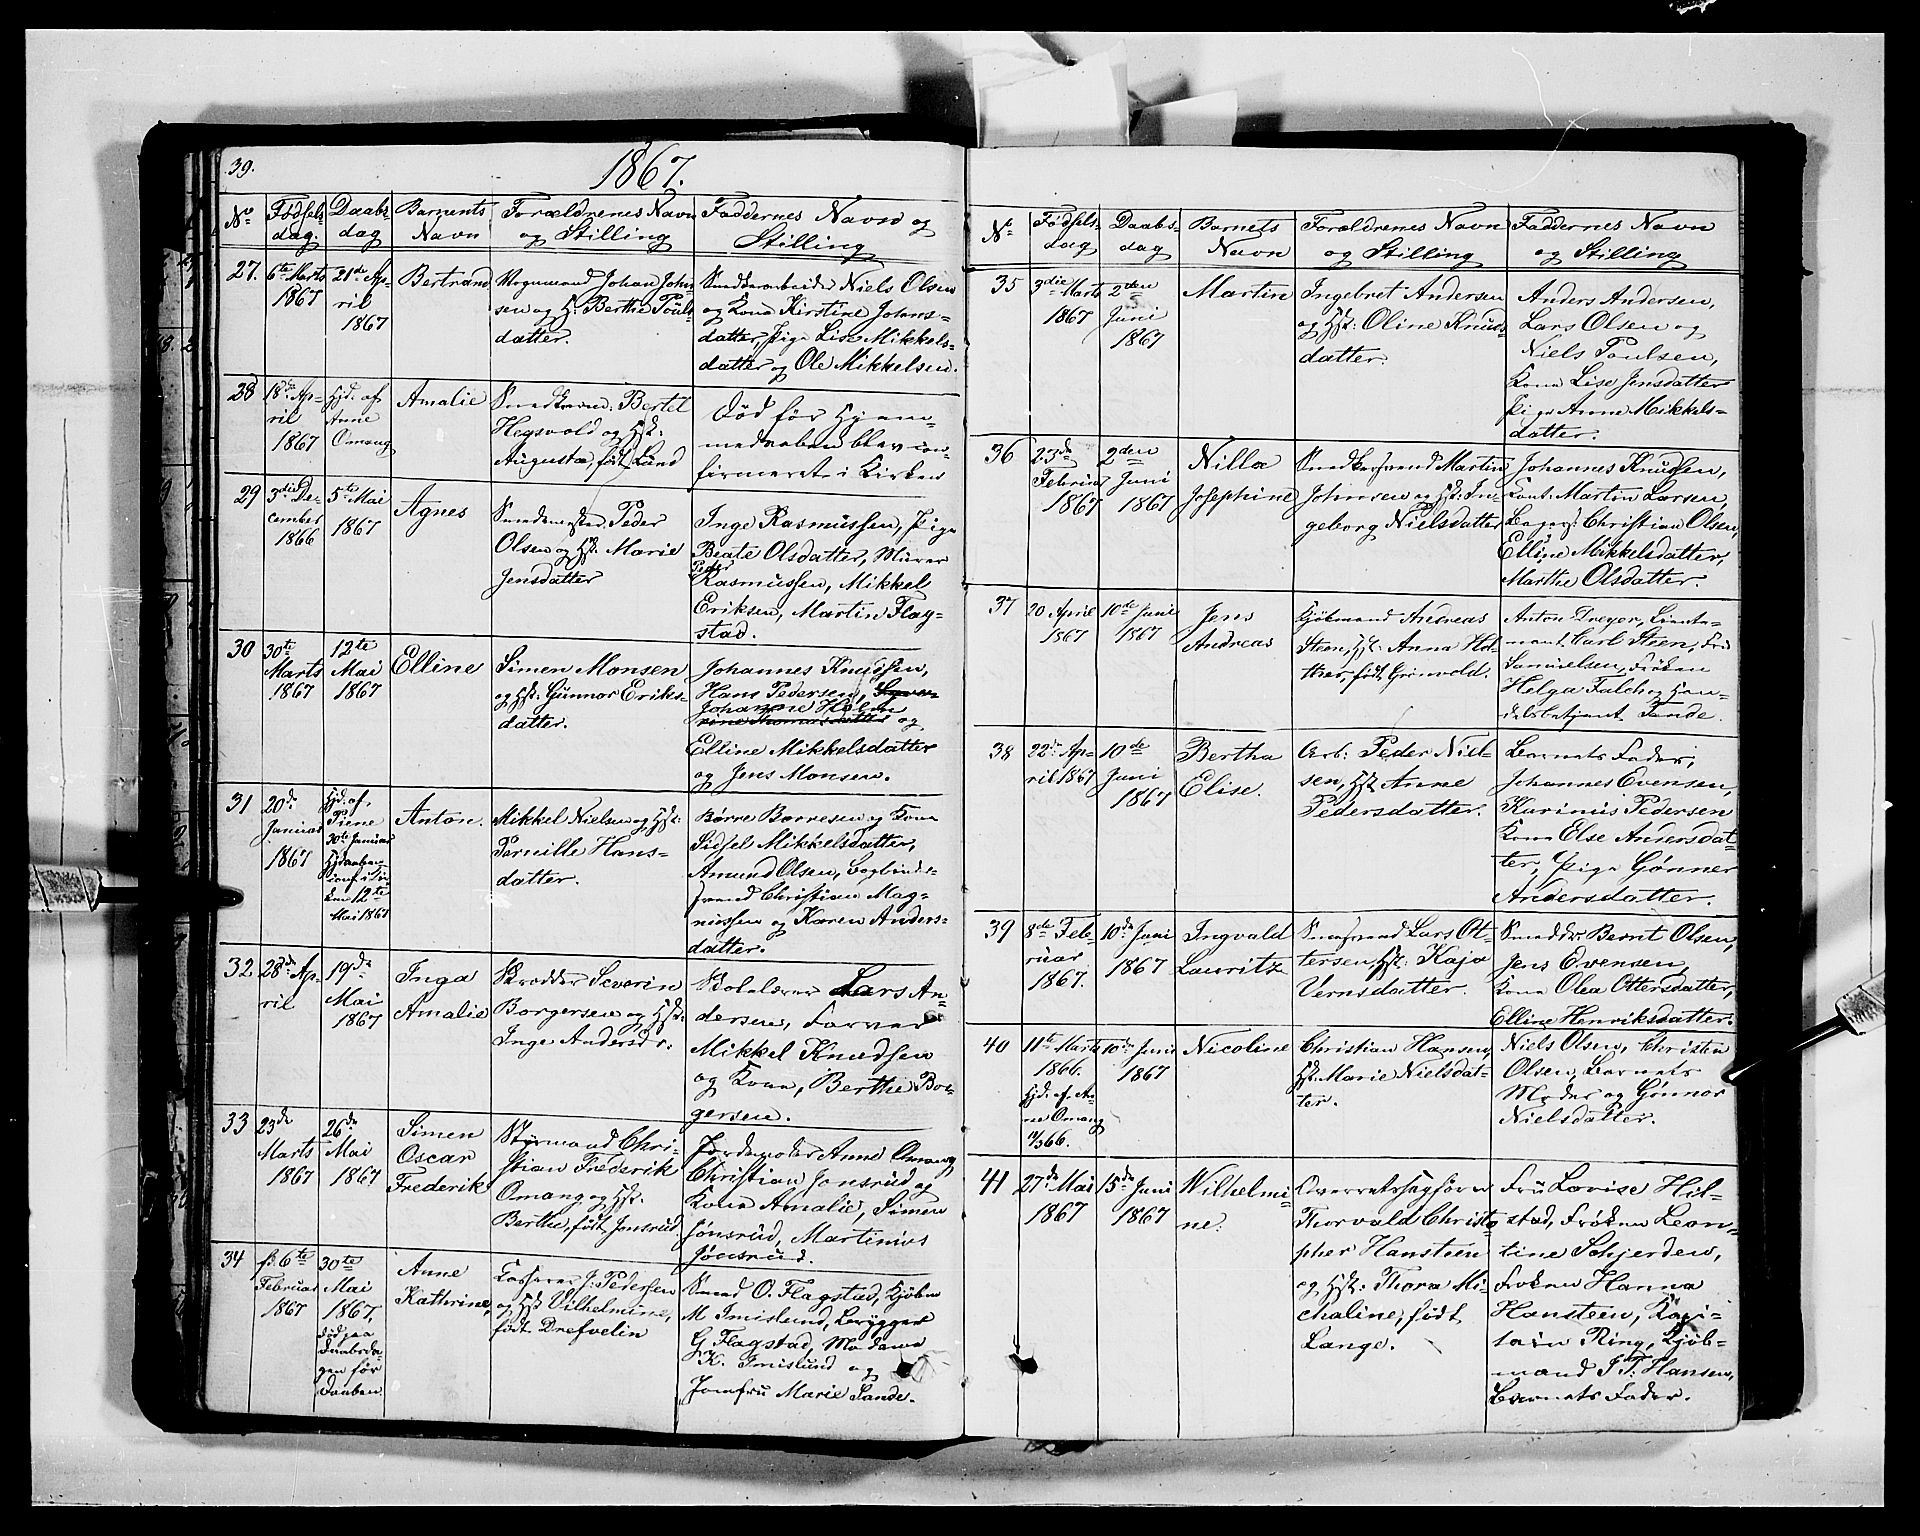 39.
1867.
No Fødsels Daabs Barnets Forældrenes Navn Faddernes Navn og
dag. dag Navn og Stilling Stilling
27. 6te Marts 1867
21de April 1867
Bertrand
Vognmand Johan John-
sen og H: Berthe Pouls-
datter.
Smedderarbeider Niels Olsen
og Kone Kirstine Johans-
datter, Pige Lise Mikkels-
datter og Ole Mikkelsen.
28 18de Ap-
ril
1867
Hjd. af
Anne
Omang
Amalie
Bertel
Hegsvold og Hst:
Augusta, født Lund
Død før Hjem-
medaaben blev con-
firmeret i Kirken
29 3die De-
cember
1866
5te Mai
1867
Agnes
Smedmester Peder
Olsen og Hst: Marie
Jensdatter
Inge Rasmussen, Pige
Beate Olsdatter, Murer
Peder
Rasmussen, Mikkel
Eriksen, Martin Flag-
stad.
30 30te
Marts
1867
12te
Mai
1867
Elline
Simen Monsen
og Hst: Gunnor Eriks-
datter.
Johannes Knudsen,
Hans Pedersen,
Johanne Holm
og
Elline Mikkelsdatter
og Jens Monsen.
31 20de
Januar
1867
Hjd. af
Piene
30te Januar
Hjdaaben
conf. i Kir-
ken 12te
Mai 1867
Anton.
Mikkel Nielsen og Hst:
Pernille Hans-
datter.
Børre Børresen og Kone
Sidsel Mikkelsdatter,
Amund Olsen, Bogbinder-
svend Christian Mag-
nussen og Karen Anders-
datter.
32. 28de Ap-
ril
19de
Mai
1867
Inga
Amalie
Skrædder Severin
Borgersen og Hst:
Inge Andersdr.
Skolelærer Lars An-
dersen, Farver
Mikkel Knudsen
og Kone, Berthe Bor-
gersen.
33 23de
Marts
1867
26de
Mai
1867
Simen
Oscar
Frederik
Styrmand Chri-
stian Frederik
Omang og Hst:
Berthe, født Jonsrud.
Jordemoder Anne Omang,
Christian Jonsrud og
Kone Amalie, Simen
Jønsrud, Martinius
Jønsrud.
34 f. 6te
Februar
1867
30te
Mai
1867,
død paa
Daabsda-
gen før
Daaben.
Anne
Kathrine,
Casserer J. Pedersen
og Hst Vilhelmine,
født Drefvelin
Smed O. Flagstad, Kjøbm
M Imislund, Brygger
G Flagstad, Madame
K. Imislund og
Jomfru Marie Sande.
No Fødsels- Daabs- Barnets Forældrenes Navn Faddernes Navn
dag dag Navn og Stilling og Stilling
35 3die Marts
1867
2den
Juni
1867
Martin
Ingebret Andersen
og Hst: Oline Knuds-
datter.
Anders Andersen,
Lars Olsen og
Niels Poulsen,
Kone Lise Jensdatter
Pige Anne Mikkels-
datter.
36 23de
Februar
1867
2den
Juni
1867
Nilla
Josephine
Martin
Johnsen og Hst: In-
geborg Nielsdatter
Johannes Knudsen,
Martin Larsen,
Christian Olsen,
Elline Mikkelsdatter,
Marthe Olsdatter.
37 20 April
1867
10de Juni
1867
Jens
Andreas
Kjøbmand Andreas
Steen, Hst: Anna Ka-
født Grønvold.
Anton Dreyer, Lieute-
nant Carl Steen, Fru
Samuelsen, Frøken
Helga Falch og Han-
delsbetjent Tande.
38 22de Ap-
ril 1867
10de
Juni
1867
Bertha
Elise.
Arb: Peder Niel-
sen, Hst Anne
Pedersdatter.
Barnets Fader,
Johannes Evensen,
Karinus Pedersen
Kone Else Andersdat-
ter, Pige Gønner
Andersdatter.
39 8de Feb-
ruar
1867.
10de Juni
1867
Ingvald
Lauritz
Smedsvend Lars Ot-
tersen, Hst: Kaja
Vernsdatter.
Smeddr. Bernt Olsen,
Jens Evensen,
Kone Olea Ottersdatter,
Elline Henriksdatter.
40 11te Marts
1866.
Hjd. af An-
ne Omang
1867
10de Juni
1867
Nicoline
Christian Hansen,
Hst: Marie Nielsdat-
ter.
Niels Olsen, Christen
Olsen, Barnets
Moder og Gønnor
Nielsdatter.
41 27de Mai
1867
15de Juni
1867
Wilhelmi-
ne.
Overretssagfører
Thorvald Christo-
pher Hansteen
og Hst: Thora Mi-
chaline, født
Lange.
Fru Lovise Hil-
stad, Frøken Leon-
tine Schjerden,
Frøken Hanna
Hansteen, Kapi-
tain Ring, Kjøb-
mand J T. Hansen,
Barnets Fader.